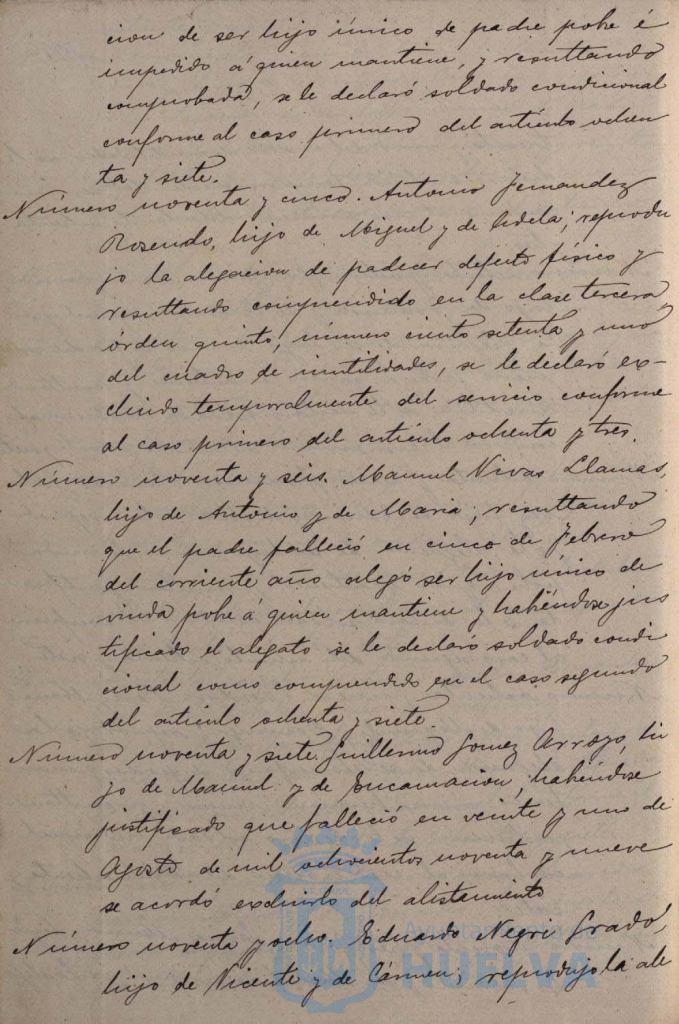 cion de ser hijo único de padre pobre é
impedido á quien mantiene, y resultando
comprobada, se le declaró soldado condicional
conforme al caso primero del artículo ochen
ta y siete.
Número noventa y cinco. Antonio Fernandez
Rosendo, hijo de Miguel y de Adela; reprodu
jo la alegacion de padecer defecto físico y
resultando comprendido en la clase tercera,
órden quinto, número ciento setenta y uno
del cuadro de inutilidades, se le declaró ex-
cluido temporalmente del servicio conforme
al caso primero del artículo ochenta y tres.
Número noventa y seis. Manuel Vivas Llamas,
hijo de Antonio y de Maria; resultando
que el padre falleció en cinco de Febrero
del corriente año alegó ser hijo único de
viuda pobre á quien mantiene y habiéndose jus
tificado el alegato se le declaró soldado condi
cional como comprendido en el caso segundo
del artículo ochenta y siete.
Número noventa y siete. Guillermo Gomez Arroyo, hi
jo de Manuel y de Encarnacion; habiéndose
justificado que falleció en veinte y uno de
Agosto de mil ochocientos noventa y nueve
se acordó excluirlo del alistamiento
Número noventa y ocho. Eduardo Negri Grado,
hijo de Vicente y de Cármen; reprodujo la ale
HUELVA